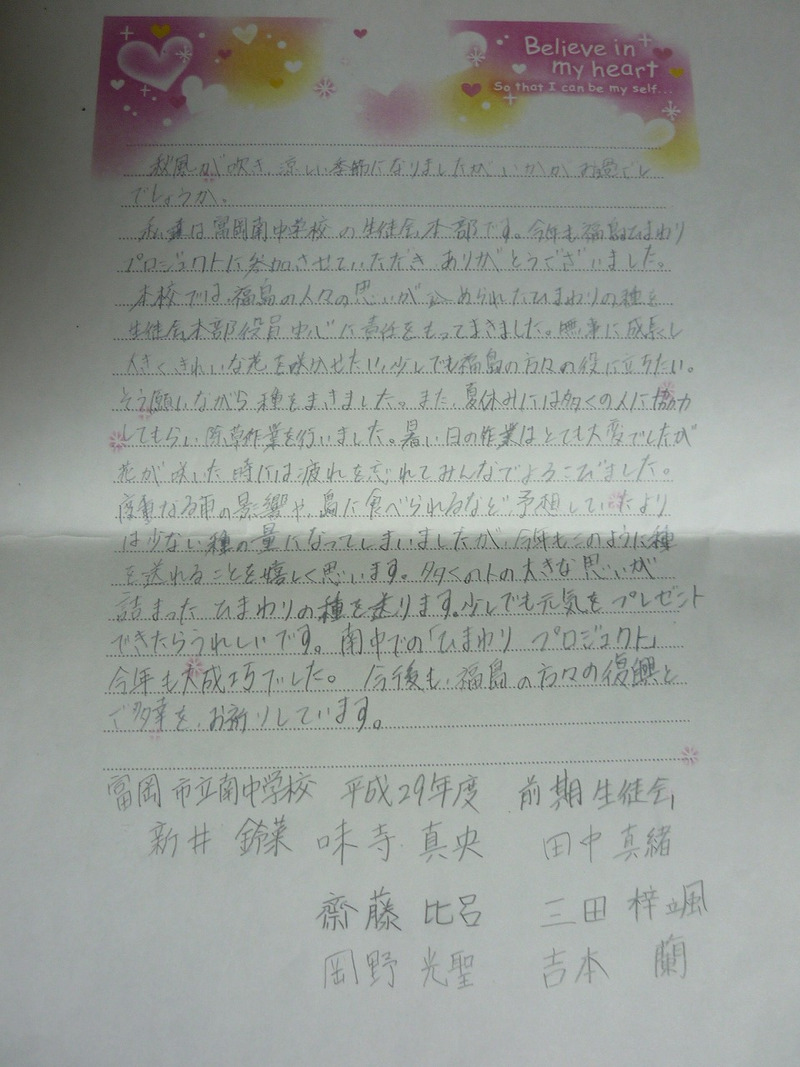 Believe in
my heart
So that I can be my self...
秋風が吹き、涼しい季節になりましたがいかがお過ごし
でしょうか。
私達は富岡南中学校の生徒会本部です。今年も福島ひまわり
プロジェクトに参加させていただきありがとうございました。
本校では、福島の人々の思いが込められたひまわりの種を
生徒会本部役員中心に責任をもってまきました。無事に成長し
大きくきれいな花を咲かせたい、少しでも福島の方々の役に立ちたい。
そう願いながら種をまきました。また、夏休みには多くの人に協力
してもらい除草作業を行いました。暑い日の作業はとても大変でしたが
花が咲いた時には疲れを忘れてみんなでよろこびました。
度重なる雨の影響や、鳥に食べられるなど予想していたより
は少ない種の量になってしまいましたが、今年もこのように種
を送れることを嬉しく思います。多くの人の大きな思いが
詰まったひまわりの種を送ります。少しでも元気をプレゼント
できたらうれしいです。南中での「ひまわりプロジェクト」
今年も大成功でした。今後も、福島の方々の復興と
ご多幸を、お祈りしています。
富岡市立南中学校 平成29年度 前期生徒会
新井 鈴菜 味寺 真央 田中真緒
齋藤 比呂 三田 梓颯
岡野 光聖 吉本 蘭